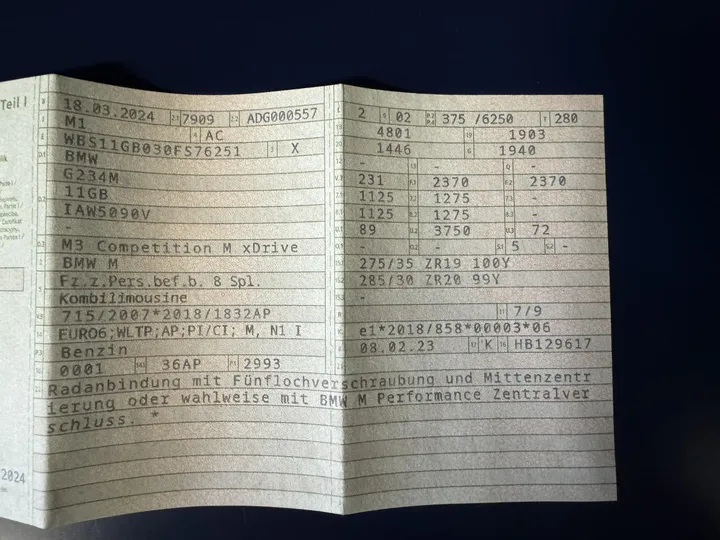 Teil I
18.03.2024 2.1 7909 2.2 ADG000557
M1 4 AC
WBS11GB030FS76251 3 X
BMW
G234M
11GB
IAW5090V
-
M3 Competition M xDrive
BMW M
Fz.z.Pers.bef.b. 8 Spl.
Kombilimousine
715/2007*2018/1832AP
EURO6;WLTP;AP;PI/CI; M, N1 I
Benzin
0001 36AP 2993
Radanbindung mit Fünflochverschraubung und Mittenzentr
ierung oder wahlweise mit BMW M Performance Zentralver
schluss. *
2 02 375 /6250 T 280
4801 1903
1446 1940
- - -
231 2370 2370
1125 1275 -
1125 1275 -
89 3750 72
- - 5 -
275/35 ZR19 100Y
285/30 ZR20 99Y
-
7/9
e1*2018/858*00003*06
08.02.23 K HB129617
2024